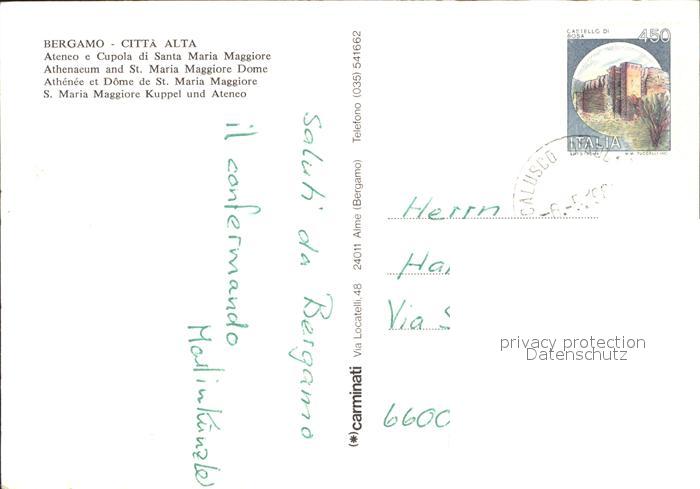 BERGAMO - CITTÀ ALTA
Ateneo e Cupola di Santa Maria Maggiore
Athenaeum and St. Maria Maggiore Dome
Athénée et Dôme de St. Maria Maggiore
S. Maria Maggiore Kuppel und Ateneo
saluti da Bergamo
il confermando
Martin Künzle
(*)carminati Via Locatelli, 48 24011 Alme (Bergamo) Telefono (035) 541662
CASTELLO DI
BOSA
450
ITALIA
CALUSCO
Herrn
Via S
6600
privacy protection
Datenschutz